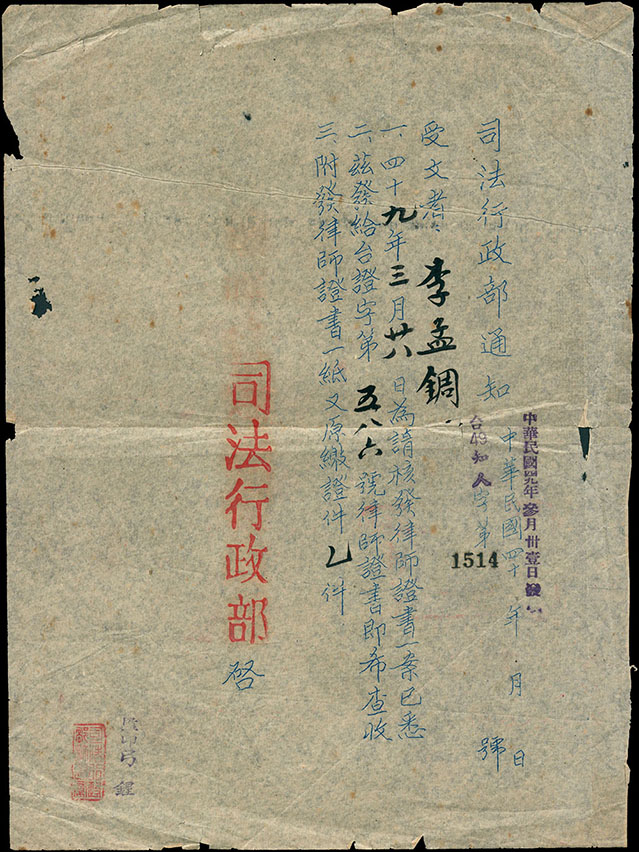 司法行政部通知
中華民國四十 年 月 日
中華民國四九年參月卅壹日發
台49知人字第 1514 號
受文者、李孟鐗、
一、四十九年三月廿八日為請核發律師證書一案已悉
二、茲發給台證字第五八六號律師證書即希查收
三、附發律師證書一紙又原繳證件乙件
司法行政部
啓